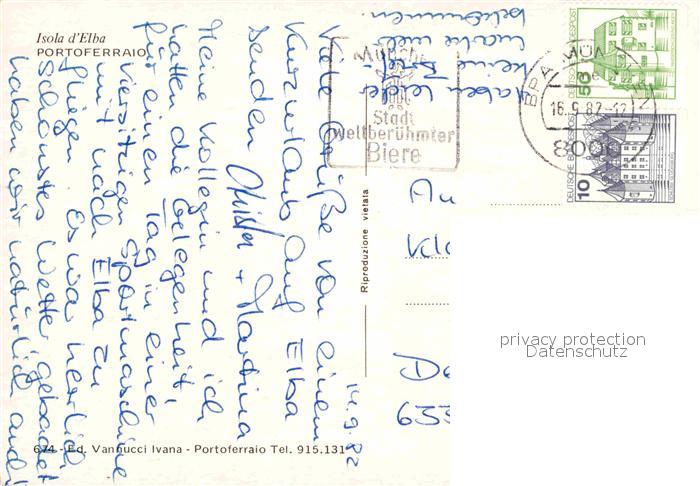 Isola d'Elba
PORTOFERRAIO
14.9.82
Viele Grüße von einem
Kurzurlaub auf Elba
senden + Martina
Meine Kollegin und ich
hatten die Gelegenheit,
für einen Tag in einer
viersitzigen Sportmaschine
mit nach Elba zu
fliegen. Es war herrlich,
schönstes Wetter, gebadet
haben wir natürlich auch!
haben leider
keine
Marke mehr
bekommen.
München
Stadt
weltberühmter
Biere
BPA MÜNCHEN
16.9.82-12
8000
DEUTSCHE BUNDESPOST
50
DEUTSCHE BUNDESPOST
10
Riproduzione vietata
674 - Ed. Vannucci Ivana - Portoferraio Tel. 915.131
privacy protection
Datenschutz